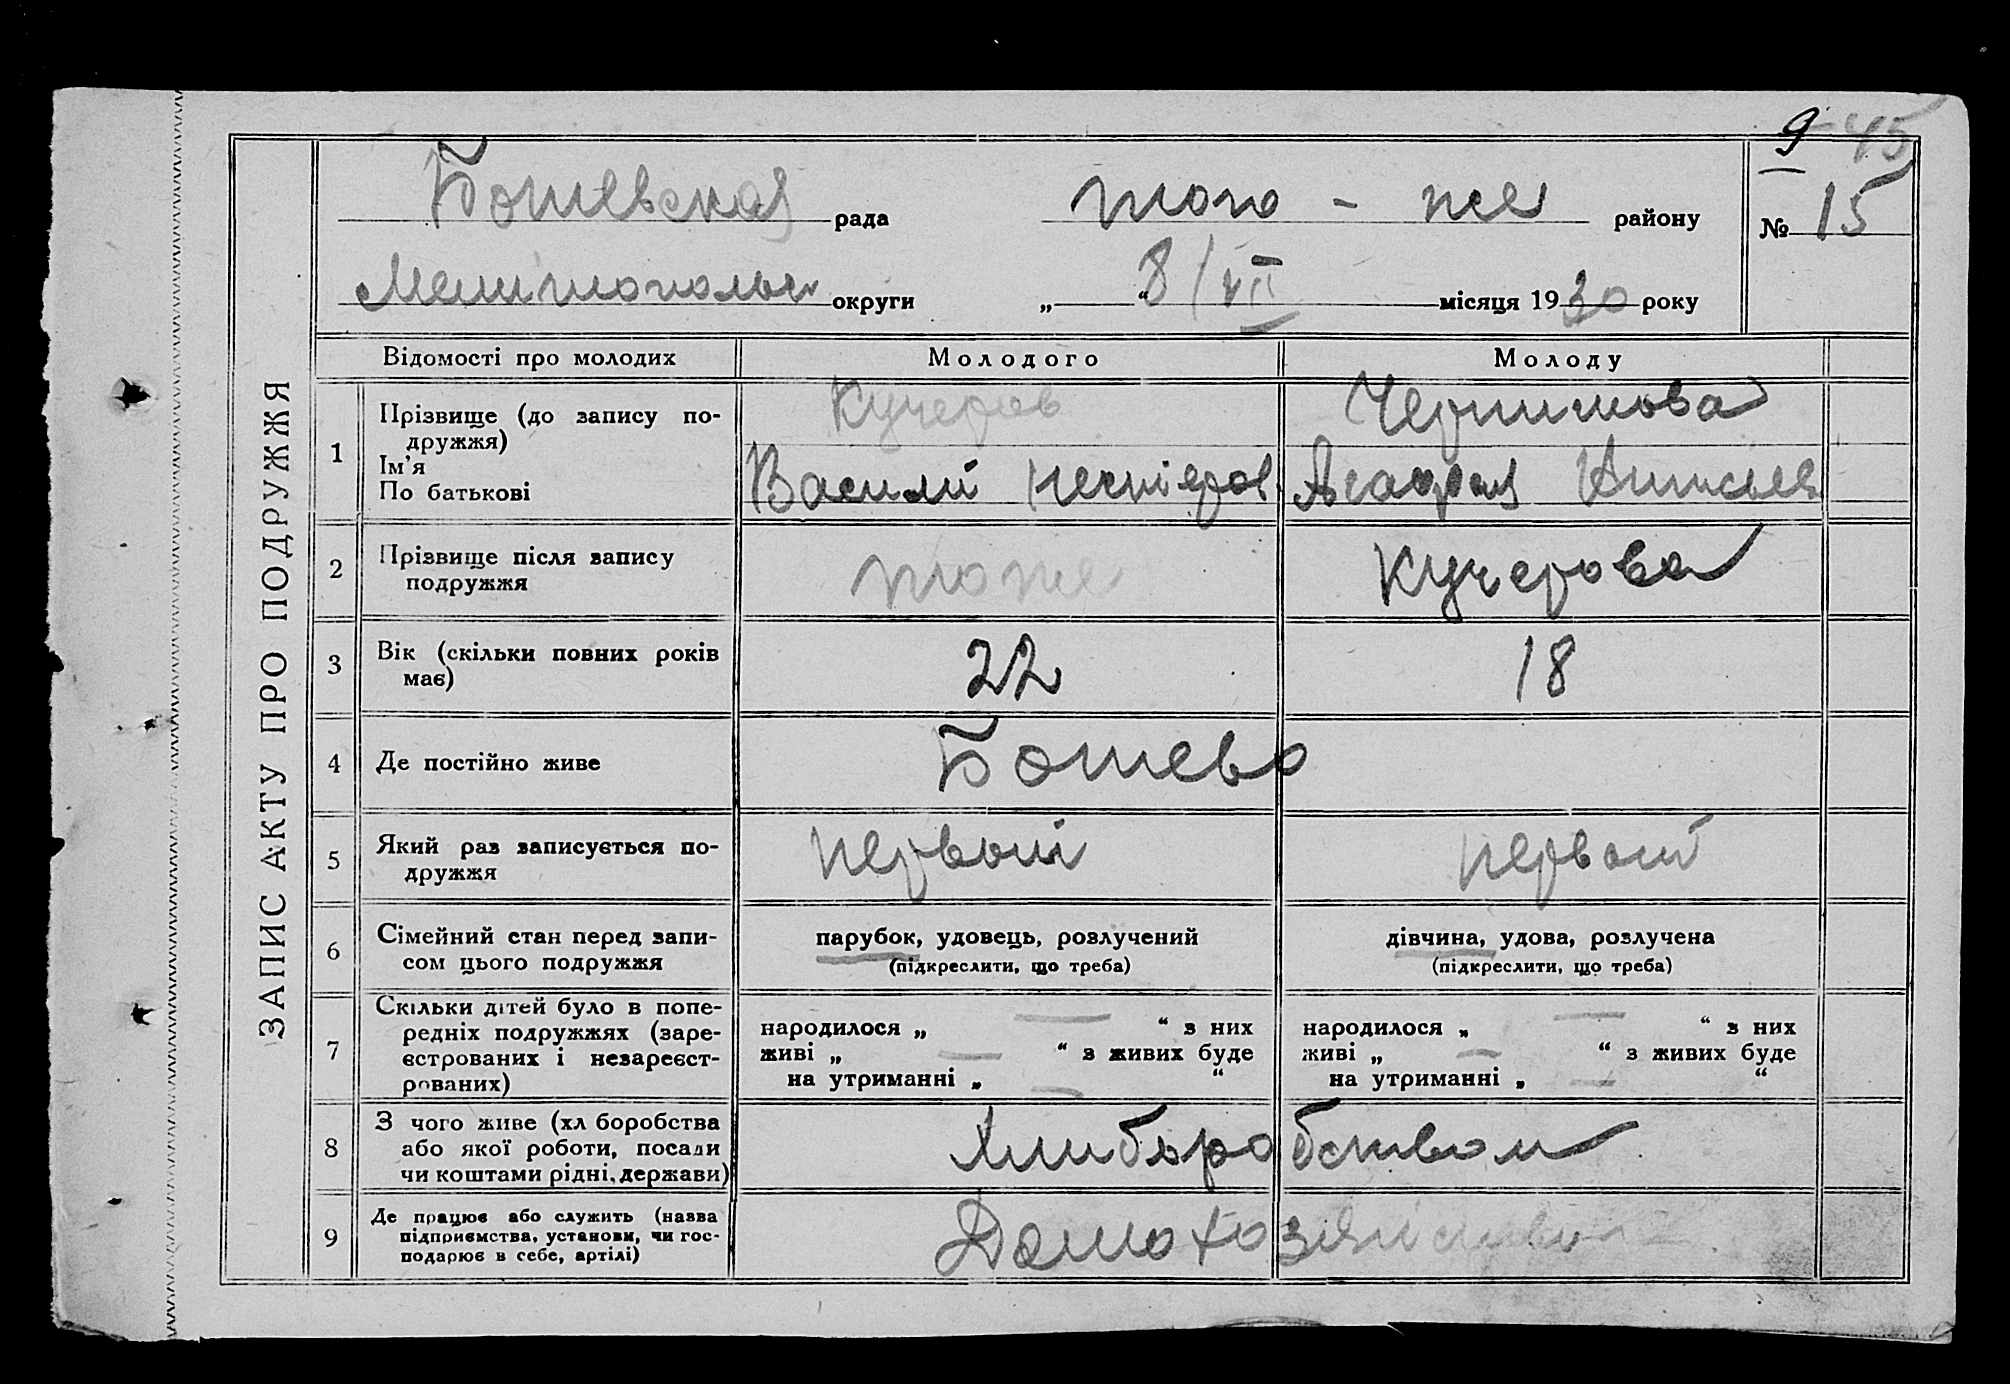 9 45
Ботевская рада того - же району № 15
Мелитопольск округи „ “ 8/VII місяця 1930 року
ЗАПИС АКТУ ПРО ПОДРУЖЖЯ
Відомості про молодих Молодого Молоду
1 Прізвище (до запису по- Кучеров
дружжя)
Ім’я Василий
По батькові
2 Прізвище після запису тоже Кучерова
подружжя
3 Вік (скільки повних років 22 18
має)
4 Де постійно живе Ботево
5 Який раз записується по- первый первый
дружжя
6 Сімейний стан перед запи- парубок, удовець, розлучений дівчина, удова, розлучена
сом цього подружжя (підкреслити, що треба) (підкреслити, що треба)
7 Скільки дітей було в попе-
редніх подружжях (заре- народилося „ — “ з них народилося „ — “ з них
єстрованих і незареєст- живі „ — “ з живих буде живі „ — “ з живих буде
рованих) на утриманні „ — “ на утриманні „ — “
8 З чого живе (хліборобства
або якої роботи, посади Хлиборобством
чи коштами рідні, держави)
9 Де працює або служить (назва
підприємства, установи, чи гос- Домохозяйство
подарює в себе, артілі)